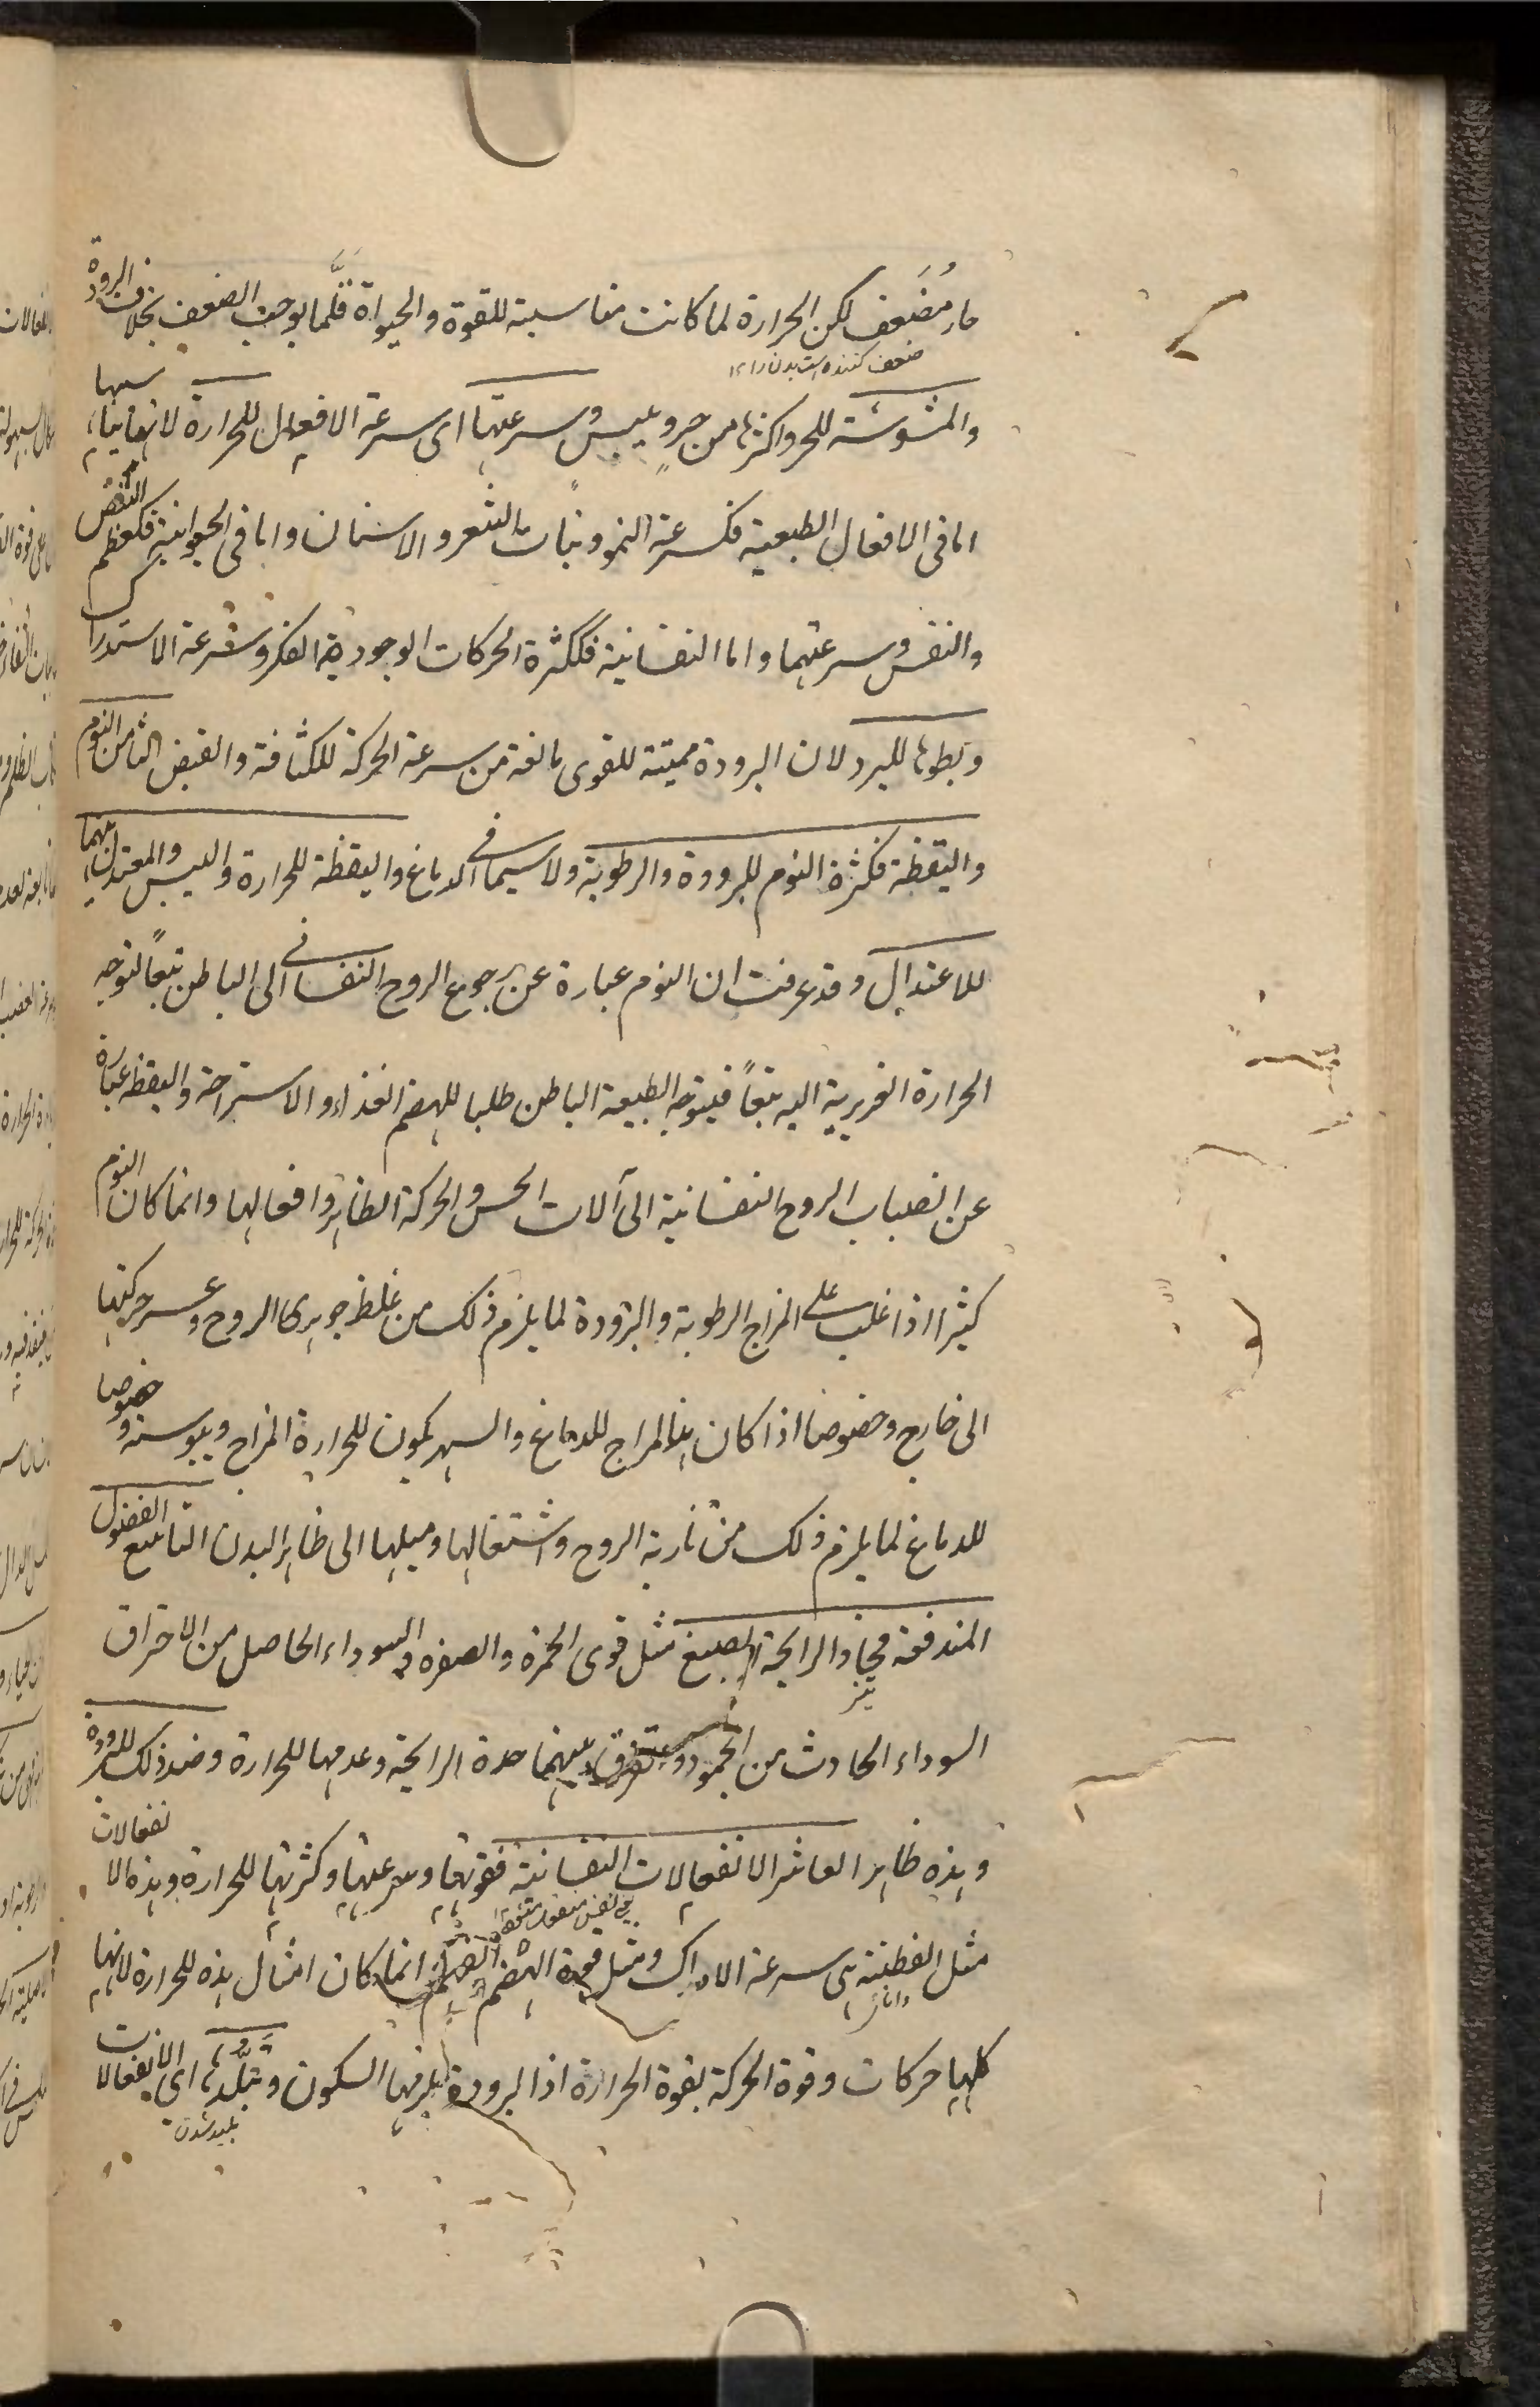 حار مُضَعف لكن الحرارة لما كانت مناسبة للقوة والحيوة قَلَّما يوجب الضعف بخلاف البرودة
ضعف كننده است بدن را ١٢
والمشوشة للحر واكثرها من حر ويبس وسرعتها اى سرعة الافعال للحرارة لانها
اما فى الافعال الطبيعية فكسرعة النمو ونبات الشعر والاسنان واما فى الحيوانية فكعظم النبض
والنفس وسرعتهما واما النفسانية فككثرة الحركات الوجودية الفكر وسرعة الاستدراك
وبطوها للبرد لان البرودة مميتة للقوى مانعة من سرعة الحركة للكثافة والقبض الثامن النوم
واليقظة فكثرة النوم للبرودة والرطوبة ولا سيما فى الدماغ واليقظة للحرارة واليبس والمعتدل منهما
للاعتدال وقد عرفت ان النوم عبارة عن رجوع الروح النفسانى الى الباطن تبعاً لتوجه
الحرارة الغريزية اليه تبعاً فيتوجه الطبيعة الباطن طلبا للهضم الغذاء والاستراحة واليقظة عبارة
عن انصباب الروح النفسانية الى آلات الحس والحركة الظاهر وافعالها وانما كان النوم
كثيرا اذا غلب على المزاج الرطوبة والبرودة لما يلزم ذلك من غلظ جوهرى الروح وعسر حركتها
الى خارج وخصوصا اذا كان هذا المزاج للدماغ والسهر يكون للحرارة المزاج ويبوسته وخصوصا
للدماغ لما يلزم ذلك من نارية الروح واشتغالها وميلها الى ظاهر البدن التاسع الفضول
المندفعة فحاد الرايحة الصبغ مثل قوى الحمرة والصفرة والسوداء الحاصل من الاحتراق
تيز
السوداء الحادث من الجمود ويتفرق بينهما حدة الرايحة وعدمها للحرارة وضد ذلك للبرودة
وهذه ظاهر العاشر الانفعالات النفسانية فقوتها وسرعتها وكثرتها للحرارة وهذه الانفعالات
مثل الفطنة هى سرعة الادراك ومثل قوة الهضم انما كان امثال هذه للحرارة لانها
كلها حركات وقوة الحركة بقوة الحرارة اذ البرودة يلزمها السكون وتبلّدها اى الانفعالات
بليد شدن